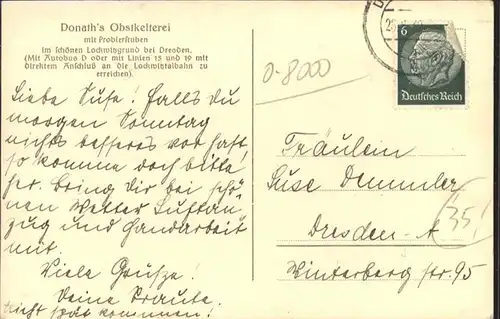 Donath's Obstkelterei
mit Probierstuben
im schönen Lockwitzgrund bei Dresden.
(Mit Autobus D oder mit Linien 15 und 19 mit
direktem Anschluß an die Lockwitztalbahn zu
erreichen).
Liebe Suse! Falls du
morgen Sonntag
nichts besseres vor hast
so komme doch bitte
her. Bring Dir bei schö-
nen Wetter Luftan-
zug und Handarbeit
mit.
Viele Grüße!
Deine Traute.
nicht spät kommen!
6
Deutsches Reich
0-8000
Fräulein
Suse Demmler
Dresden-A
Winterberg str. 95
35!